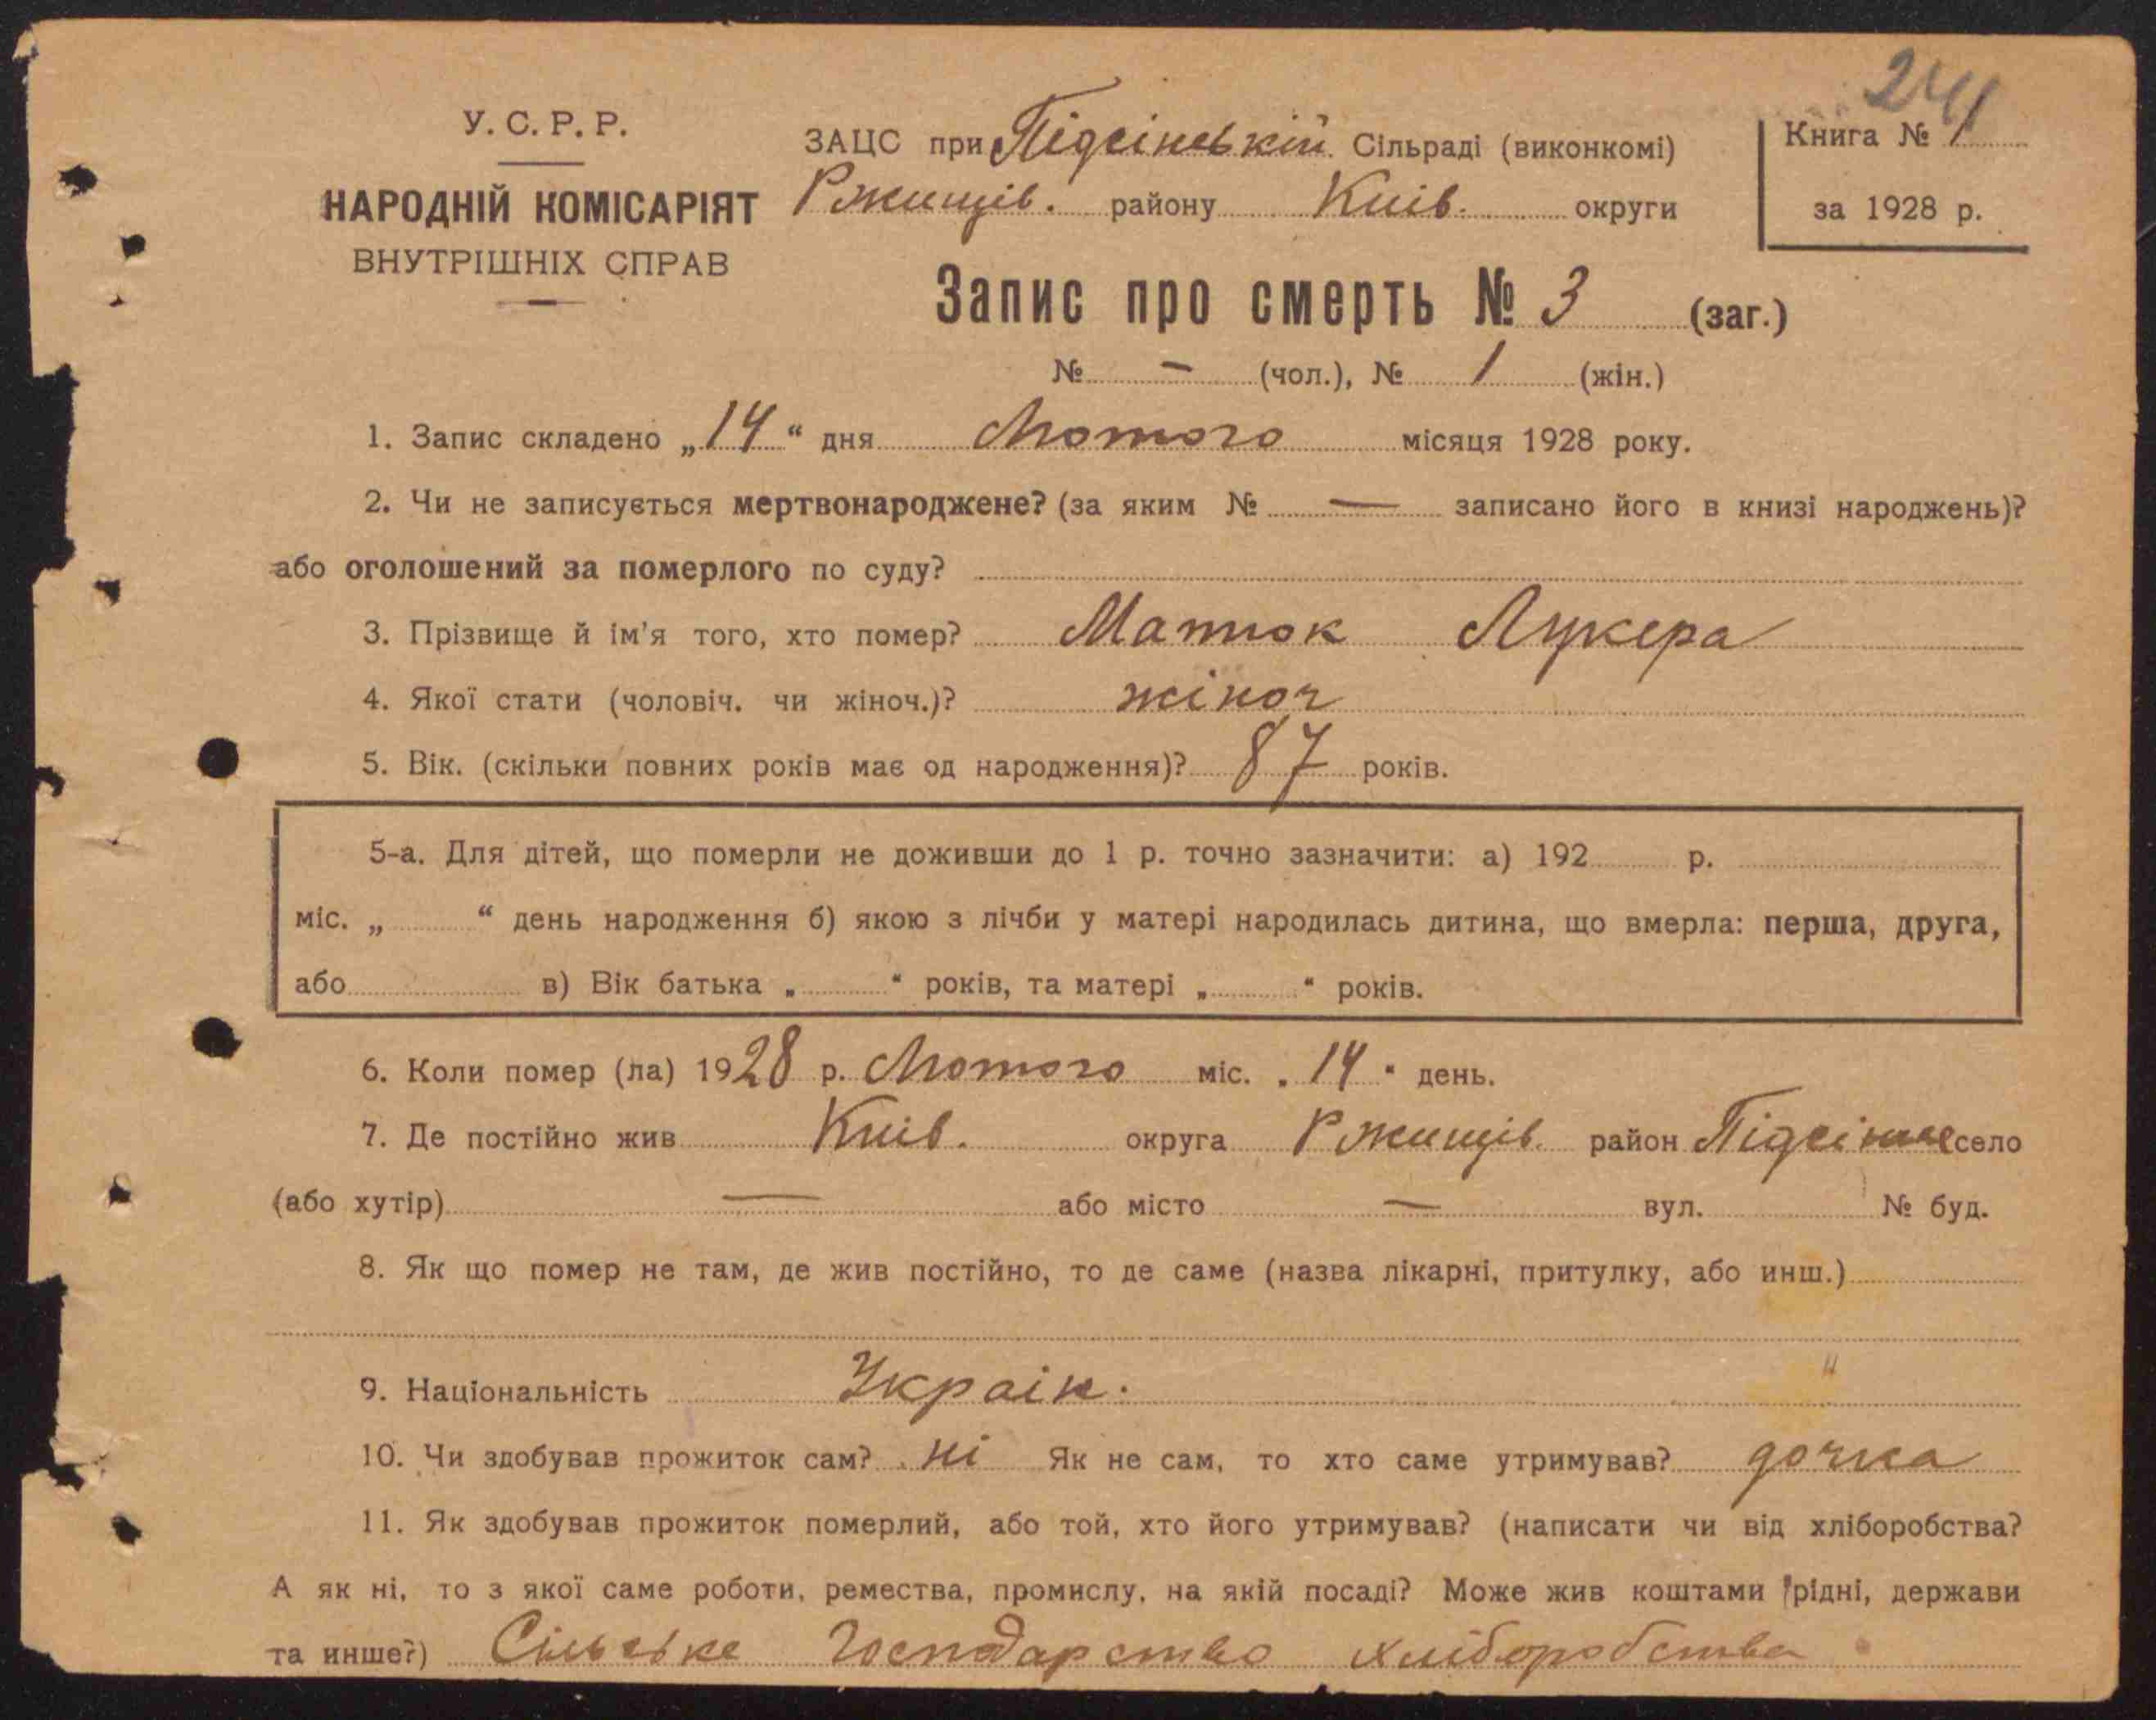 241
У. С. Р. Р.
НАРОДНІЙ КОМІСАРІЯТ
ВНУТРІШНІХ СПРАВ
ЗАЦС при Підсінській Сільраді (виконкомі)
Ржищів. району Киів. округи
Книга № 1
за 1928 р.
Запис про смерть № 3 (заг.)
№ — (чол.), № 1 (жін.)
1. Запис складено „14“ дня Лютого місяця 1928 року.
2. Чи не записується мертвонароджене? (за яким № — записано його в книзі народжень)?
або оголошений за померлого по суду?
3. Прізвище й ім'я того, хто помер? Матюк Лукера
4. Якої стати (чоловіч. чи жіноч.)? жіноч
5. Вік. (скільки повних років має од народження)? 87 років.
5-а. Для дітей, що померли не доживши до 1 р. точно зазначити: а) 192 р.
міс. „ “ день народження б) якою з лічби у матері народилась дитина, що вмерла: перша, друга,
або в) Вік батька „ “ років, та матері „ “ років.
6. Коли помер (ла) 1928 р. Лютого міс. „14“ день.
7. Де постійно жив Киів. округа Ржищів. район Підсінне село
(або хутір) — або місто — вул. № буд.
8. Як що помер не там, де жив постійно, то де саме (назва лікарні, притулку, або инш.)
9. Національність Украін.
10. Чи здобував прожиток сам? ні Як не сам, то хто саме утримував? дочка
11. Як здобував прожиток померлий, або той, хто його утримував? (написати чи від хліборобства?
А як ні, то з якої саме роботи, ремества, промислу, на якій посаді? Може жив коштами рідні, держави
та инше?) Сільське Господарство хліборобства